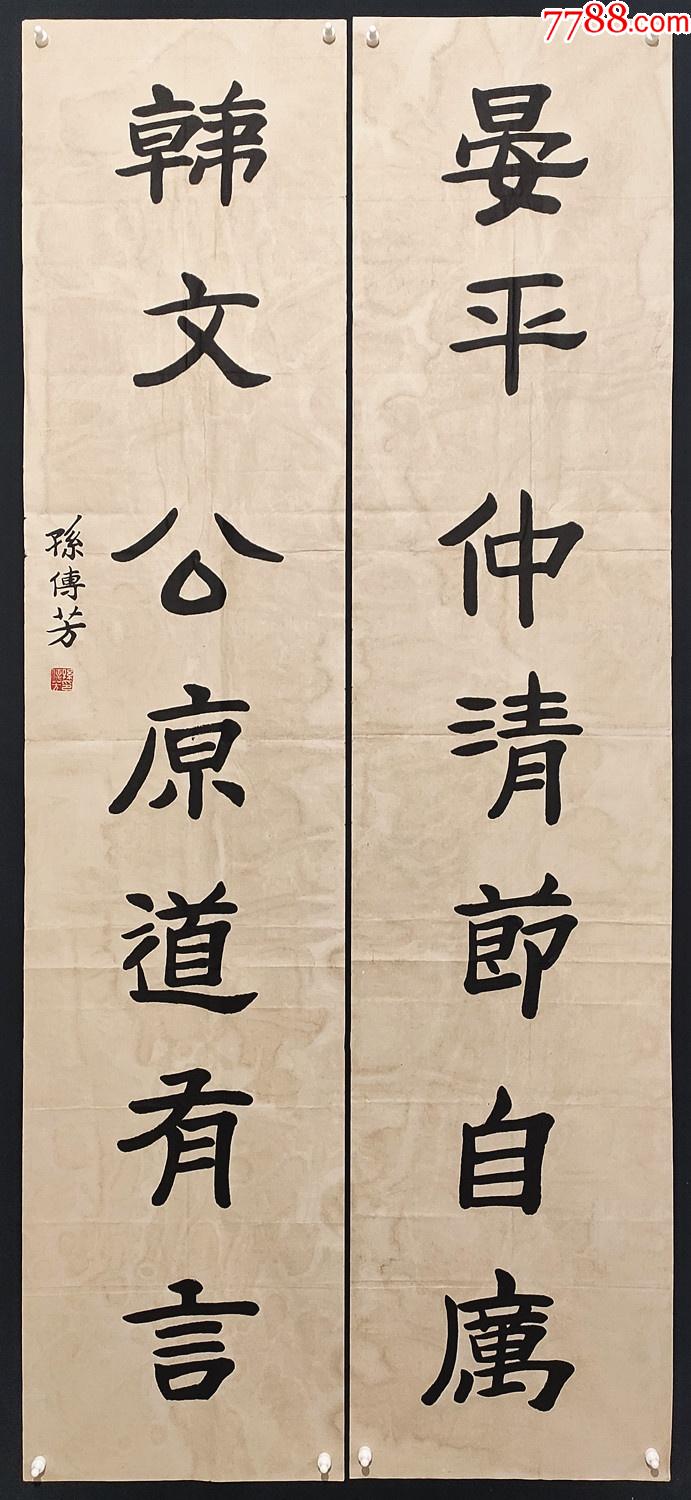 7788.com
晏平仲清節自厲
韓文公原道有言
孫傳芳